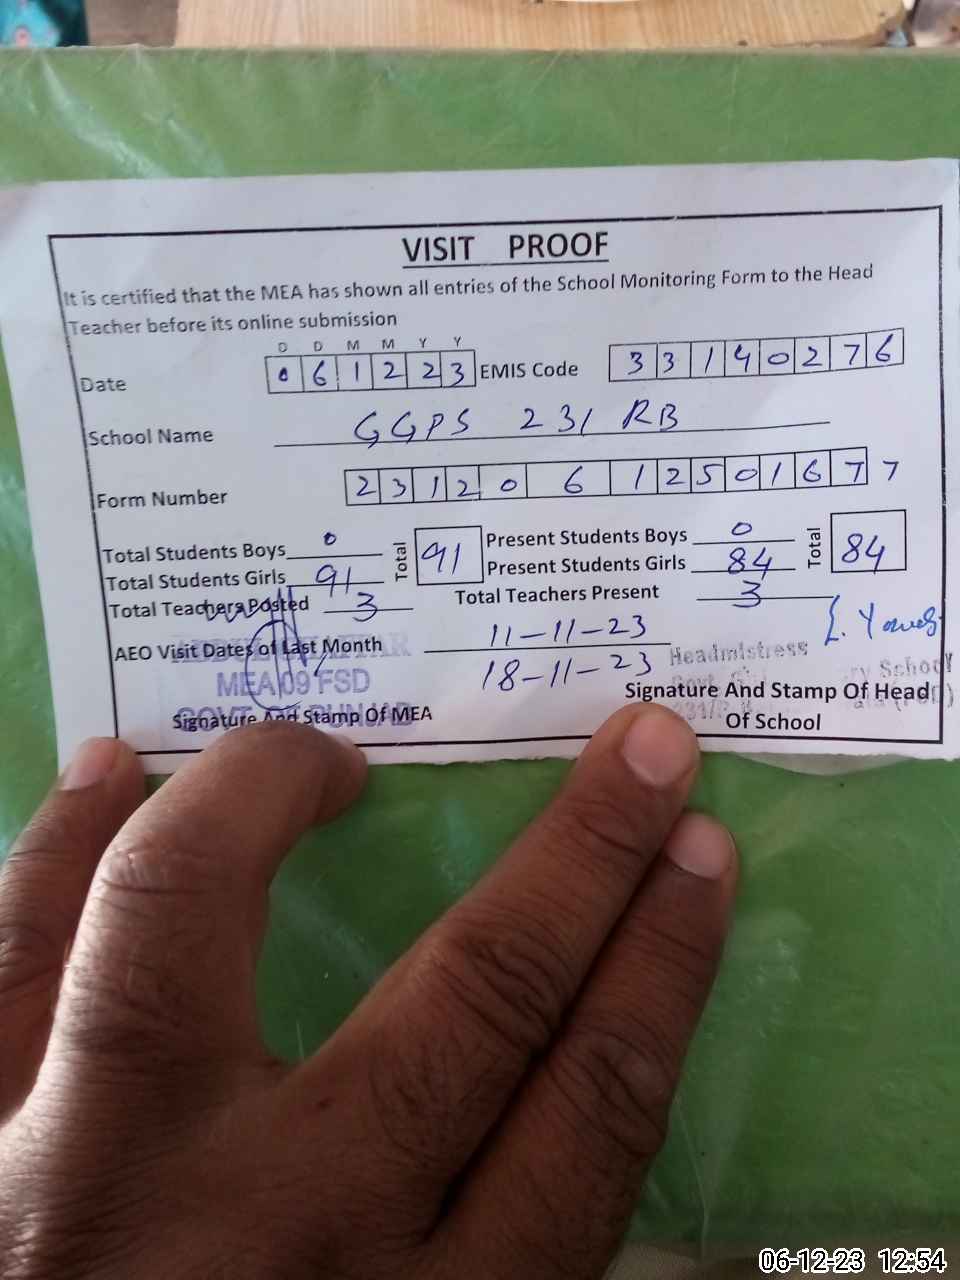 VISIT PROOF
It is certified that the MEA has shown all entries of the School Monitoring Form to the Head
Teacher before its online submission
D D M M Y Y
Date 0 6 1 2 2 3 EMIS Code 3 3 1 4 0 2 7 6
School Name GGPS 231 RB
Form Number 2 3 1 2 0 6 1 2 5 0 1 6 7 7
Total Students Boys 0 Total 91 Present Students Boys 0 Total 84
Total Students Girls 91 Present Students Girls 84
Total Teachers Posted 3 Total Teachers Present 3
AEO Visit Dates of Last Month 11-11-23
18-11-23
Headmistress
MEA 09 FSD
School
Signature And Stamp Of MEA
GOVT OF PUNJAB
Signature And Stamp Of Head
Of School
06-12-23 12:54